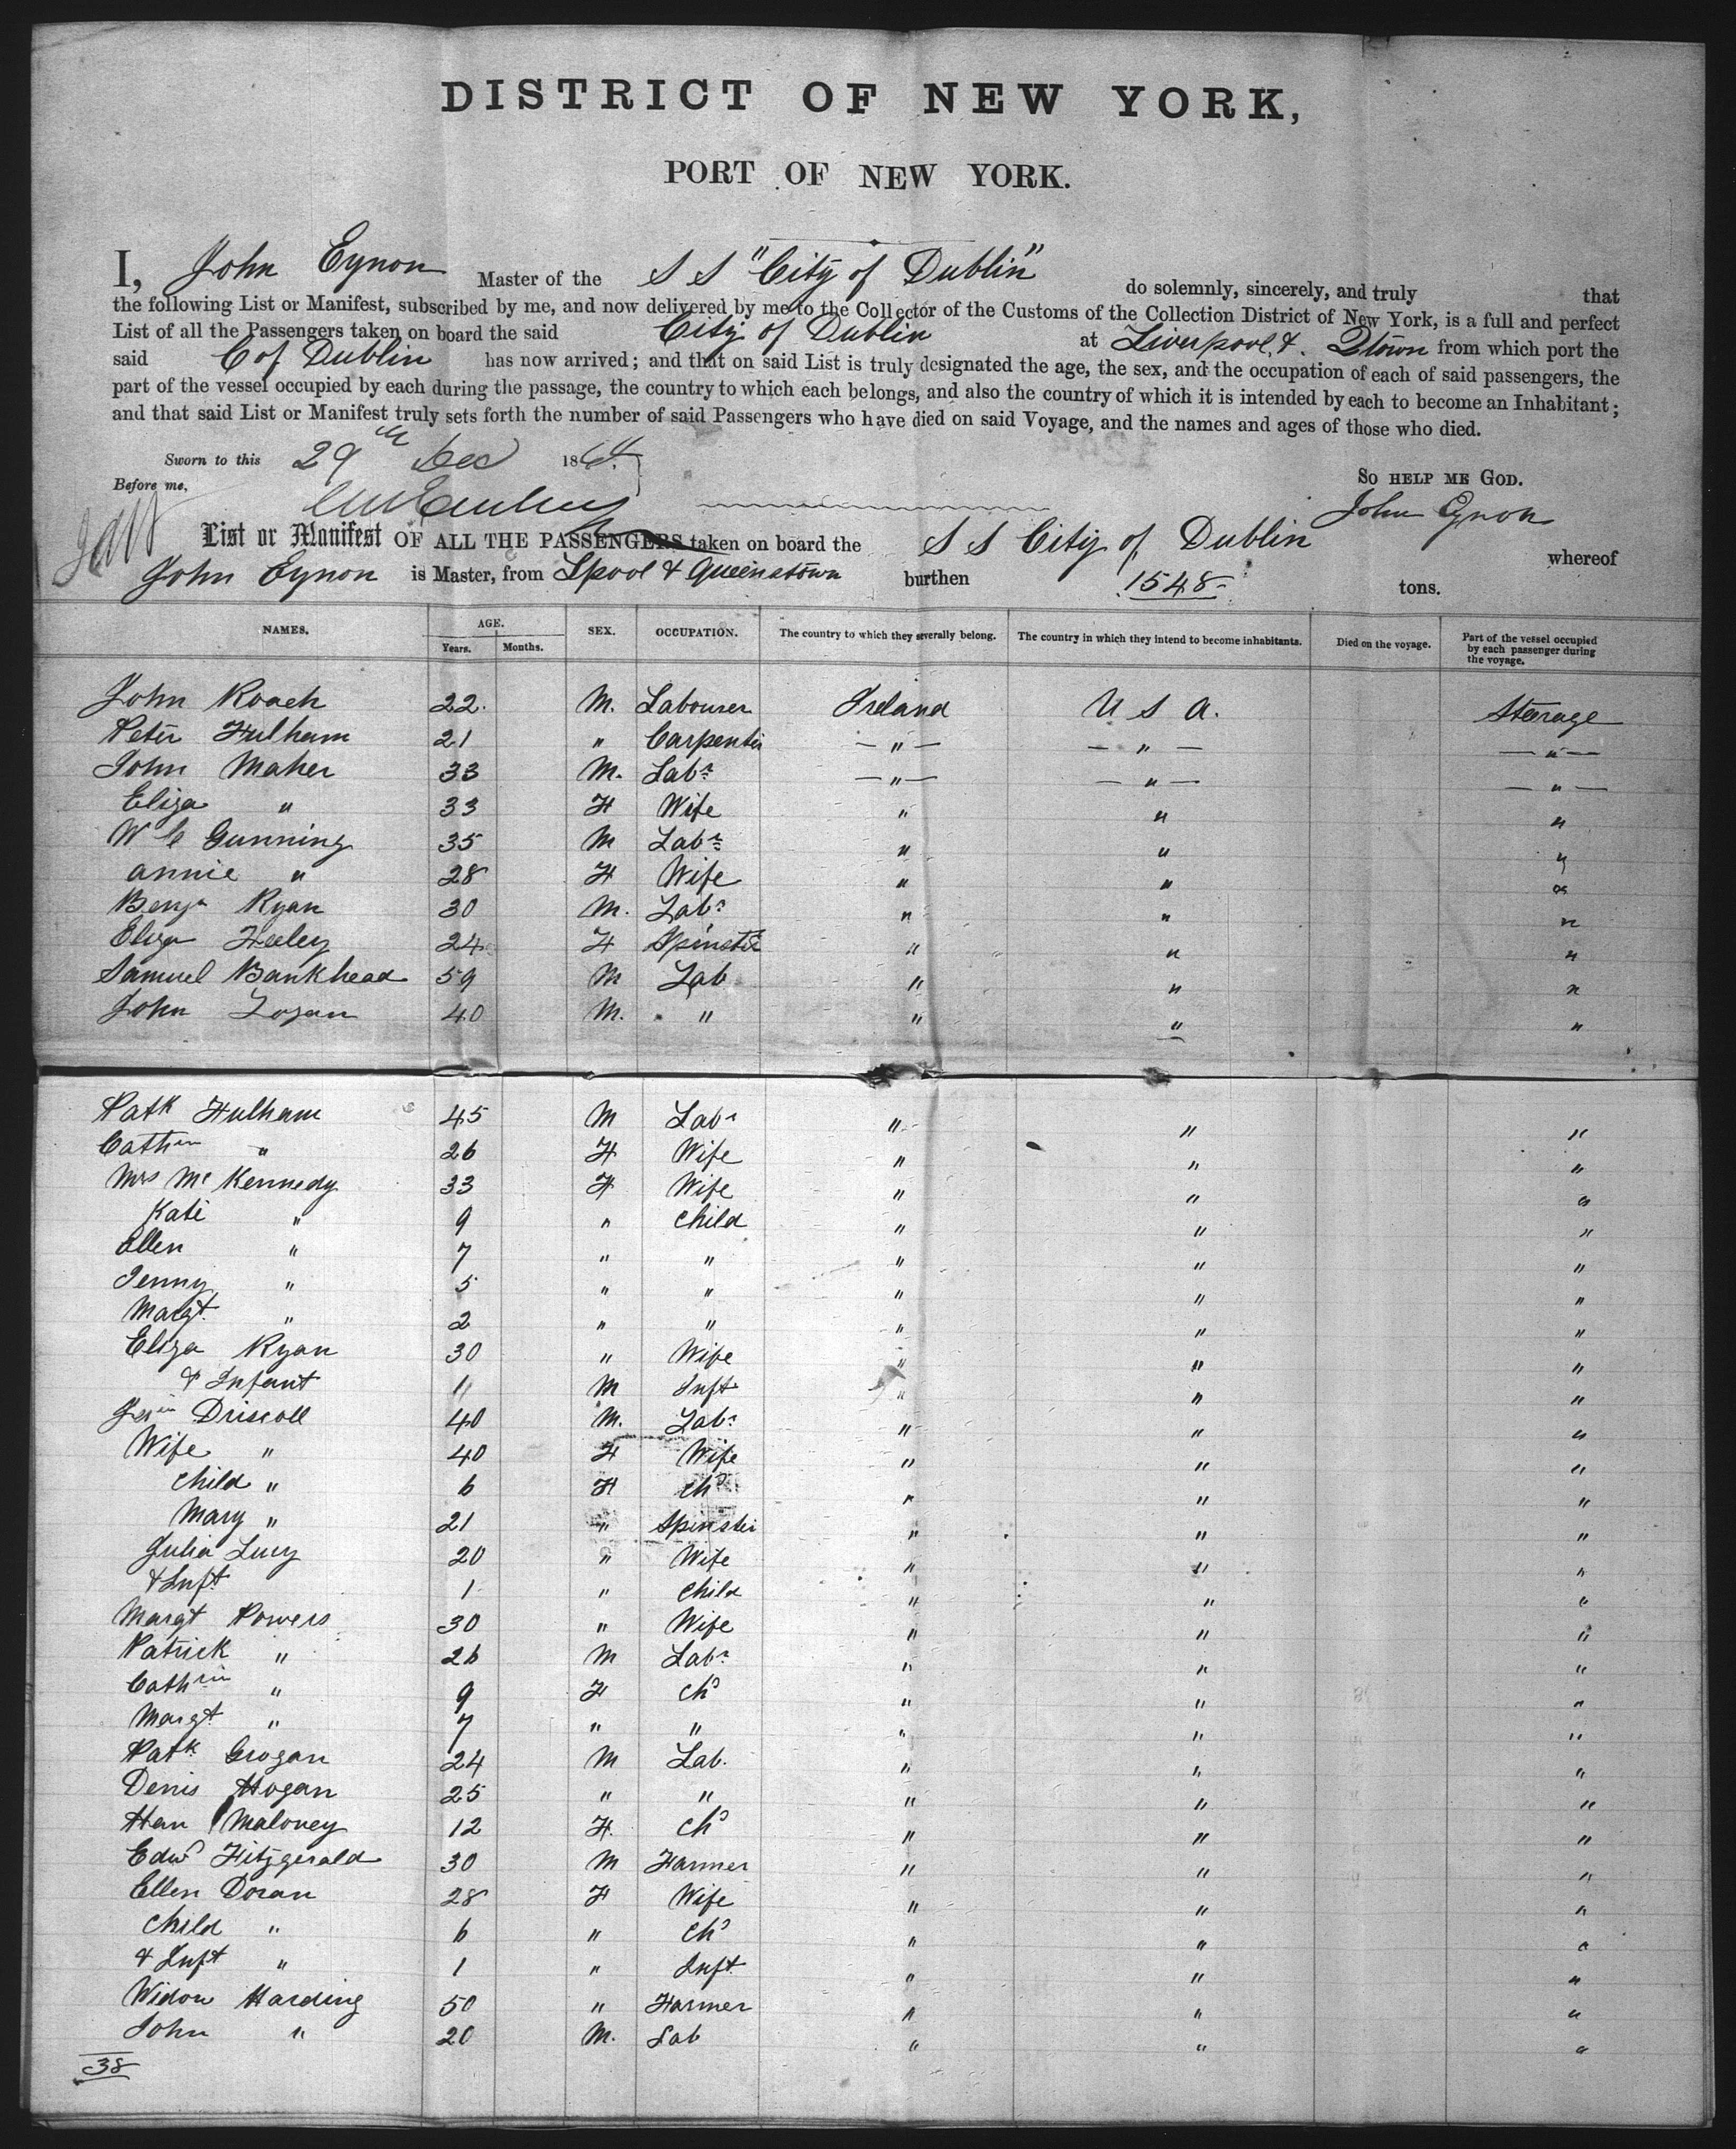 DISTRICT OF NEW YORK,
PORT OF NEW YORK.
I, John Eynon Master of the S S "City of Dublin" do solemnly, sincerely, and truly that
the following List or Manifest, subscribed by me, and now delivered by me to the Collector of the Customs of the Collection District of New York, is a full and perfect
List of all the Passengers taken on board the said City of Dublin at Liverpool, & Qtown from which port the
said C of Dublin has now arrived; and that on said List is truly designated the age, the sex, and the occupation of each of said passengers, the
part of the vessel occupied by each during the passage, the country to which each belongs, and also the country of which it is intended by each to become an Inhabitant;
and that said List or Manifest truly sets forth the number of said Passengers who have died on said Voyage, and the names and ages of those who died.
Sworn to this 29th Dec 1864. SO HELP ME GOD.
Before me, John Eynon
List or Manifest OF ALL THE PASSENGERS taken on board the S S City of Dublin whereof
John Eynon is Master, from Lpool & Queenstown burthen 1548 tons.
NAMES. AGE. Years. Months. SEX. OCCUPATION. The country to which they severally belong. The country in which they intend to become inhabitants. Died on the voyage. Part of the vessel occupied by each passenger during the voyage.
John Roach 22. M. Labourer Ireland U S A. Steerage
Peter Fulham 21 " Carpenter — " — — " — — " —
John Maher 33 M. Labr — " — — " — — " —
Eliza " 33 F Wife " " "
Gunning 35 M Labr " " "
Annie " 28 F Wife " " "
Benjn Ryan 30 M. Labr " " "
Eliza Feeley 24 F Spinster " " "
Samuel Bankhead 59 M Lab " " "
John Logan 40 M. " " " "
Patk Fulham 45 M Labr " " "
Cathin " 26 F Wife " " "
Mrs Mc Kennedy 33 F Wife " " "
Kate " 9 " Child " " "
Ellen " 7 " " " " "
Jenny " 5 " " " " "
Margt. " 2 " " " " "
Eliza Ryan 30 " Wife " " "
& Infant 1 M Inft " " "
Driscoll 40 M. Labr " " "
Wife " 40 F Wife " " "
Child " 6 F Chd " " "
Mary " 21 " Spinster " " "
Julia Lucy 20 " Wife " " "
& Inft 1 " Child " " "
Margt Powers 30 " Wife " " "
Patrick " 26 M Labr " " "
Cathrin " 9 F Chd " " "
Margt " 7 " " " " "
Patk Grogan 24 M Lab. " " "
Denis Hogan 25 " " " " "
Han Maloney 12 F. Chd " " "
Edwd Fitzgerald 30 M Farmer " " "
Ellen Doran 28 F Wife " " "
Child " 6 " Chd " " "
& Inft " 1 " Inft " " "
Widow Harding 50 " Farmer " " "
John " 20 M. Lab " " "
38